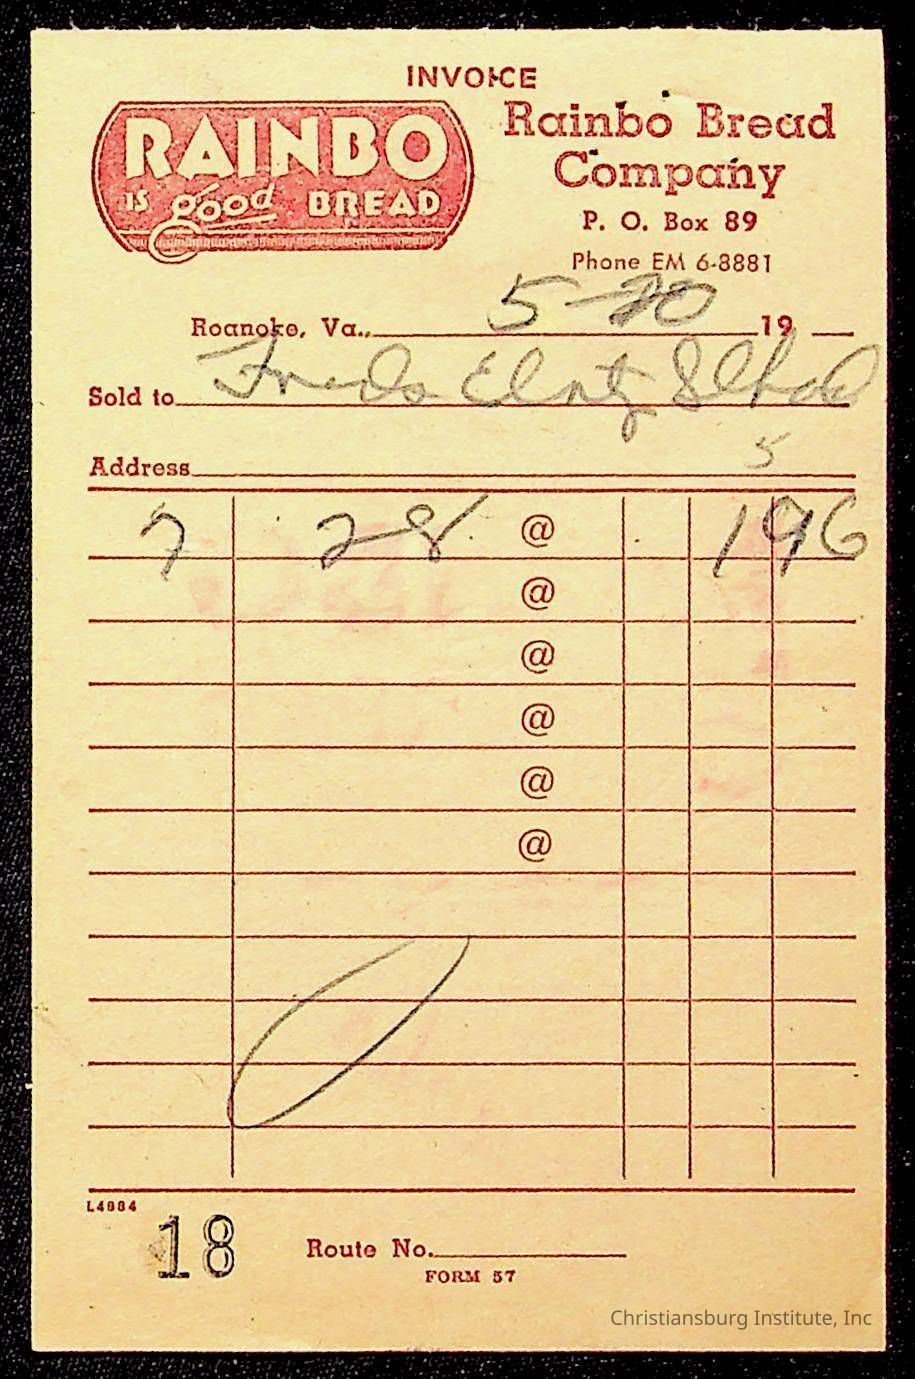 INVOICE
RAINBO
IS good BREAD
Rainbo Bread
Company
P. O. Box 89
Phone EM 6-3881
Roanoke, Va., 5-20 19
Sold to
Address 5
7 28 @ 196
@
@
@
@
@
L4984
18 Route No.
FORM 57
Christiansburg Institute, Inc